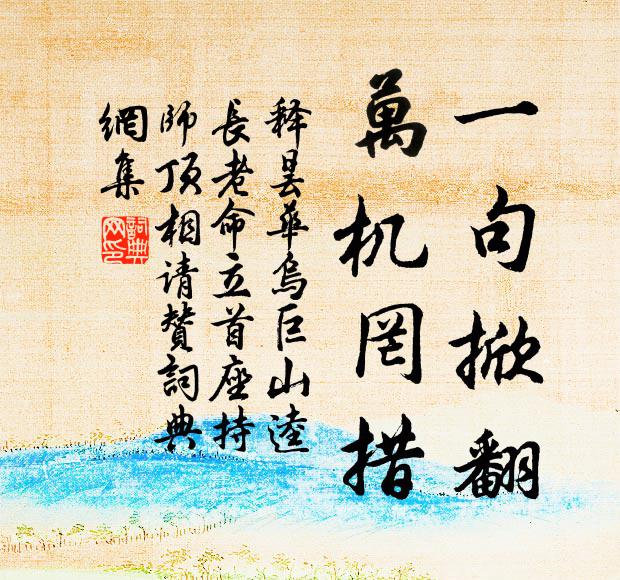 一句掀翻
萬机罔措
释昙华烏巨山逵
長老命立首座持
师顶相请赞詞典
網集
詞典
网印